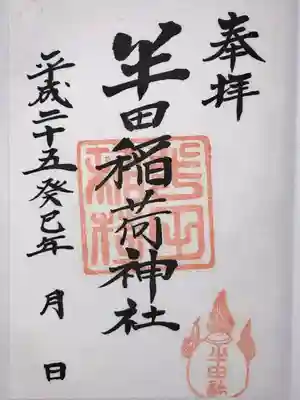 奉拝
半田稲荷神社
平成二十五癸巳年 月 日
半田
稲荷